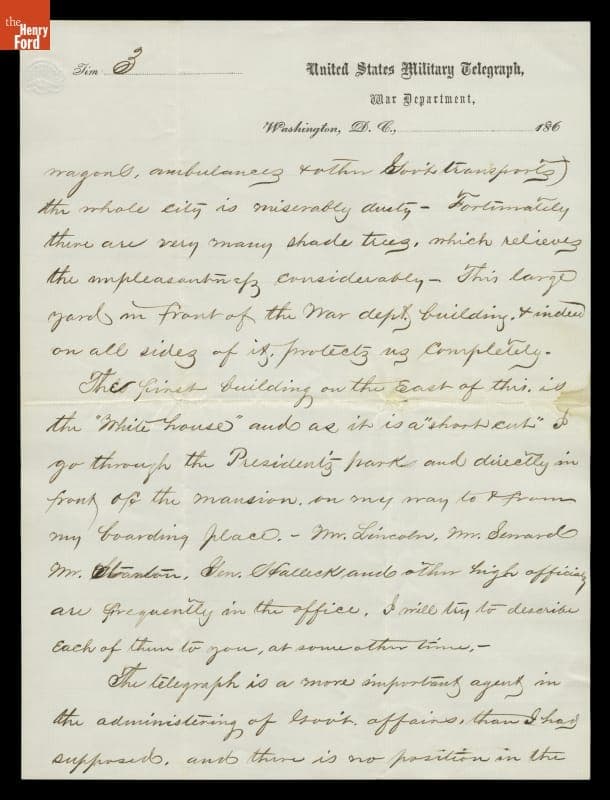 the
Henry
Ford
Tim 3
United States Military Telegraph,
War Department,
Washington, D. C., 186
wagons, ambulances & other Gov't transports)
the whole city is miserably dusty – Fortunately
there are very many shade trees, which relieves
the unpleasantness considerably – This large
yard in front of the War dept. building, & indeed
on all sides of it, protects us completely.
The first building on the East of this, is
the "White house" and as it is a "short cut" I
go through the President's park and directly in
front of the mansion, on my way to & from
my boarding place. – Mr. Lincoln, Mr. Seward
Mr. Stanton, Gen. Halleck and other high officials
are frequently in the office. I will try to describe
each of them to you, at some other time, –
The telegraph is a more important agent in
the administering of Gov't. affairs, than I had
supposed, and there is no position in the